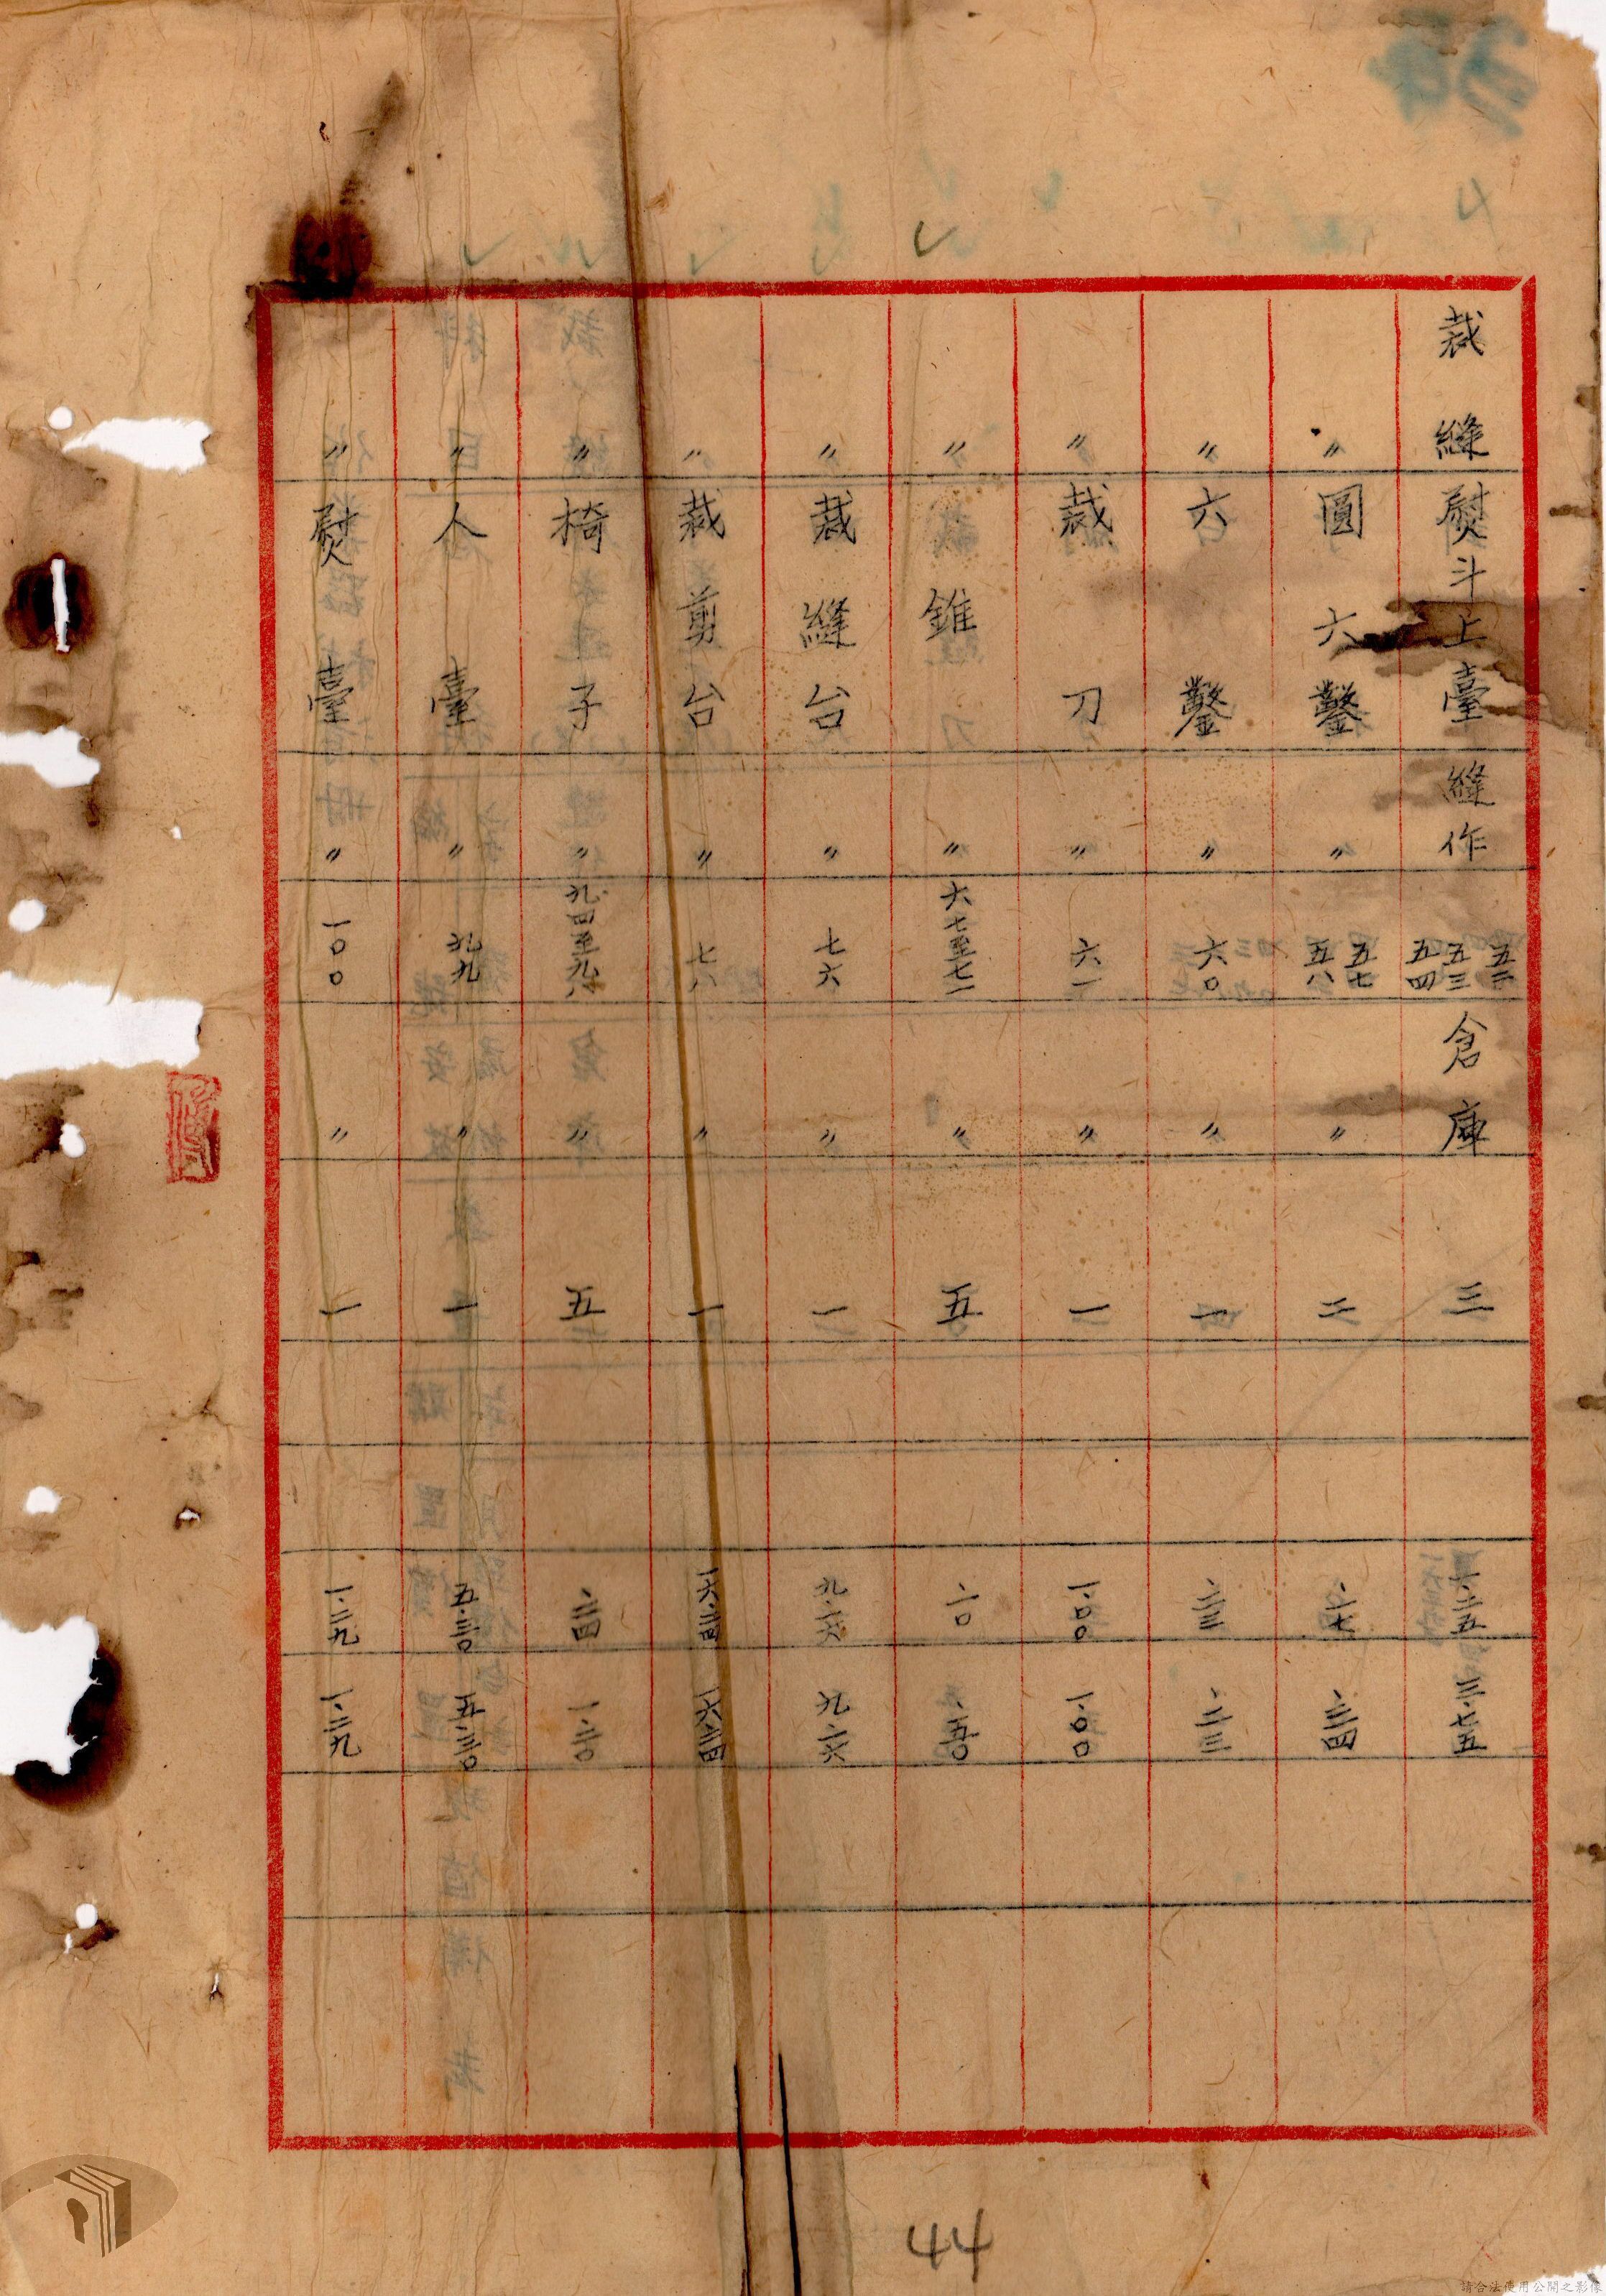 裁縫 熨斗上臺 縫作 五二 五三 五四 倉庫 三 一·二五 三·七五
〃 圓六鑿 〃 五七 五八 〃 二 ·一七 ·三四
〃 六鑿 〃 六〇 〃 一 ·二三 ·二三
〃 裁刀 〃 六一 〃 一 一·〇〇 一·〇〇
〃 錐 〃 六七至七一 〃 五 ·一〇 ·五〇
〃 裁縫台 〃 七六 〃 一 九·一六 九·一六
〃 裁剪台 〃 七八 〃 一 一六·三四 一六·三四
〃 椅子 〃 九四至九八 〃 五 ·二四 一·二〇
〃 人臺 〃 九九 〃 一 五·三〇 五·三〇
〃 熨臺 〃 一〇〇 〃 一 一·二九 一·二九
44
請合法使用公開之影像